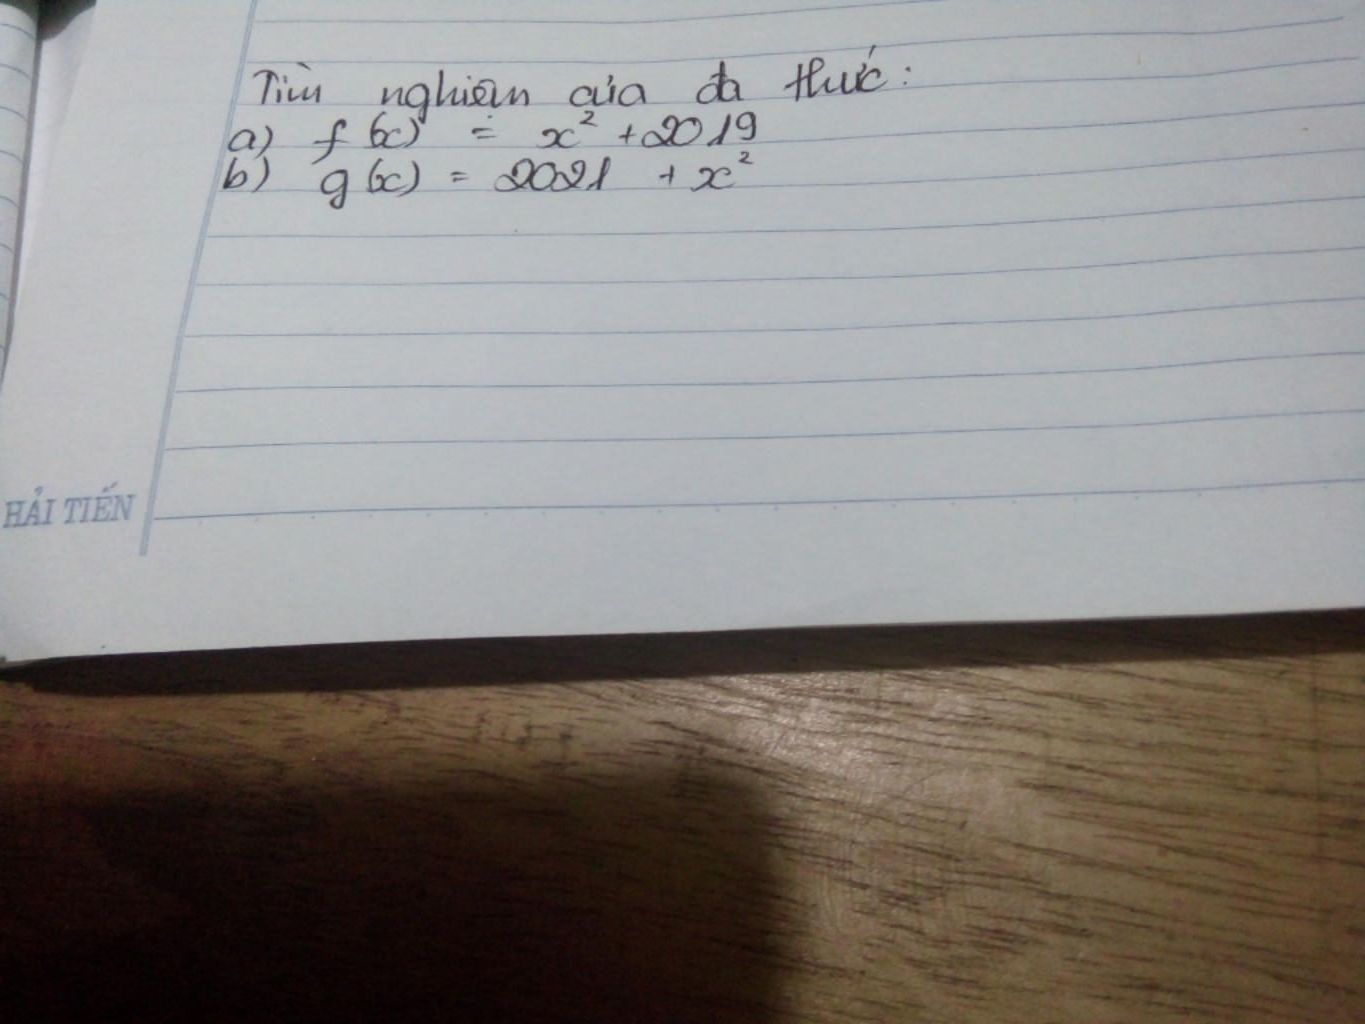 Tìm nghiệm của đa thức:
a) f(x) = x² + 2019
b) g(x) = 2021 + x²
HẢI TIẾN